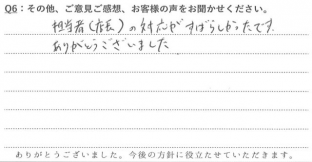 Q6：その他、ご意見ご感想、お客様の声をお聞かせください。
担当者(店長)の対応がすばらしかったです。
ありがとうございました
ありがとうございました。今後の方針に役立たせていただきます。